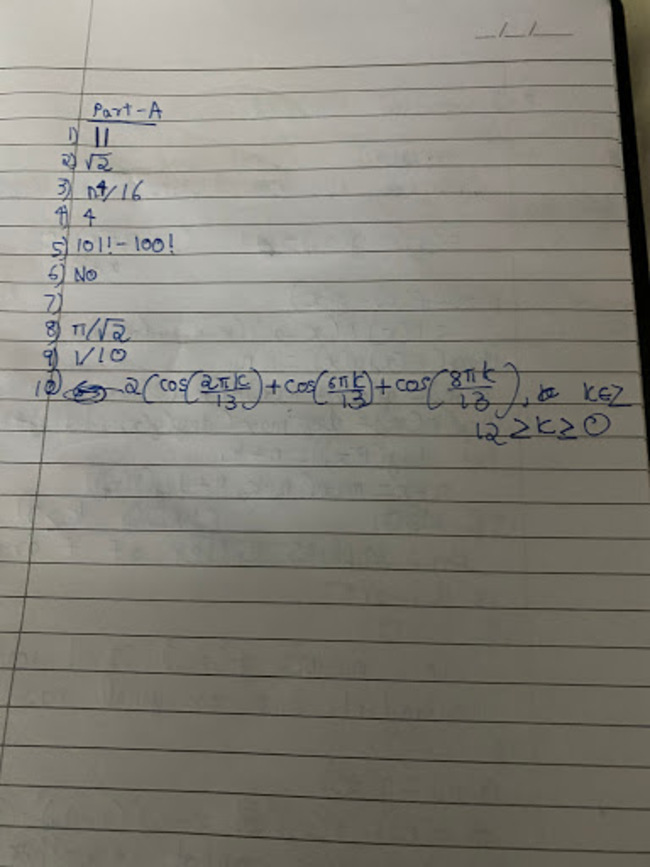 _/_/_
Part-A
1) 11
2) √2
3) π⁴/16
4) 4
5) 101!-100!
6) NO
7)
8) π/√2
9) 1/10
10) 2(cos(2πk/13)+cos(6πk/13)+cos(8πk/13), k∈Z
12≥k≥0